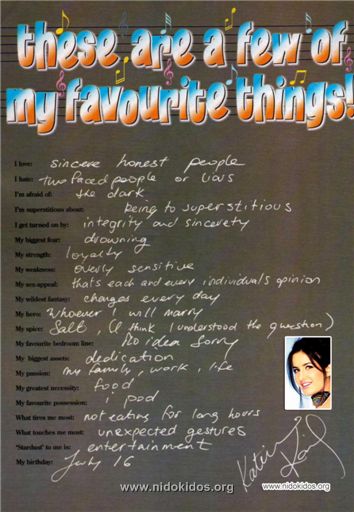 these are a few of
my favourite things!
I love: sincere honest people
I hate: two faced people or liars
I'm afraid of: the dark
I'm superstitious about: being to superstitious
I get turned on by: integrity and sincerety
My biggest fear: drowning
My strength: loyalty
My weakness: overly sensitive
My sex appeal: thats each and every individuals opinion
My wildest fantasy: changes every day
My hero: whoever I will marry
My spice: Salt, (I think I understood the question)
My favourite bedroom line: No idea sorry
My biggest assets: dedication
My passion: my family, work, life
My greatest necessity: food
My favourite possession: i pod
What tires me most: not eating for long hours
What touches me most: unexpected gestures
'Stardust' to me is: entertainment
My birthday: July 16
Katrina Kaif
www.nidokidos.org
www.nidokidos.org